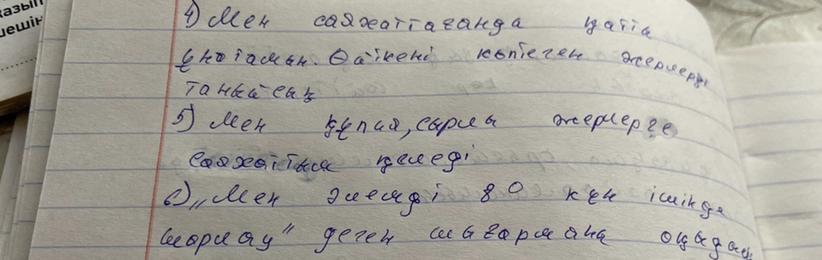 азып
шешін
4) Мен саяхаттағанда қатты
ұнатамын. Өйткені көптеген жерлерді
танисың
5) Мен құпия, сырлы жерлерге
саяхаттым келеді
6) „Мен әлемді 80 күн ішінде
шарлау" деген шығарманы оқыдым